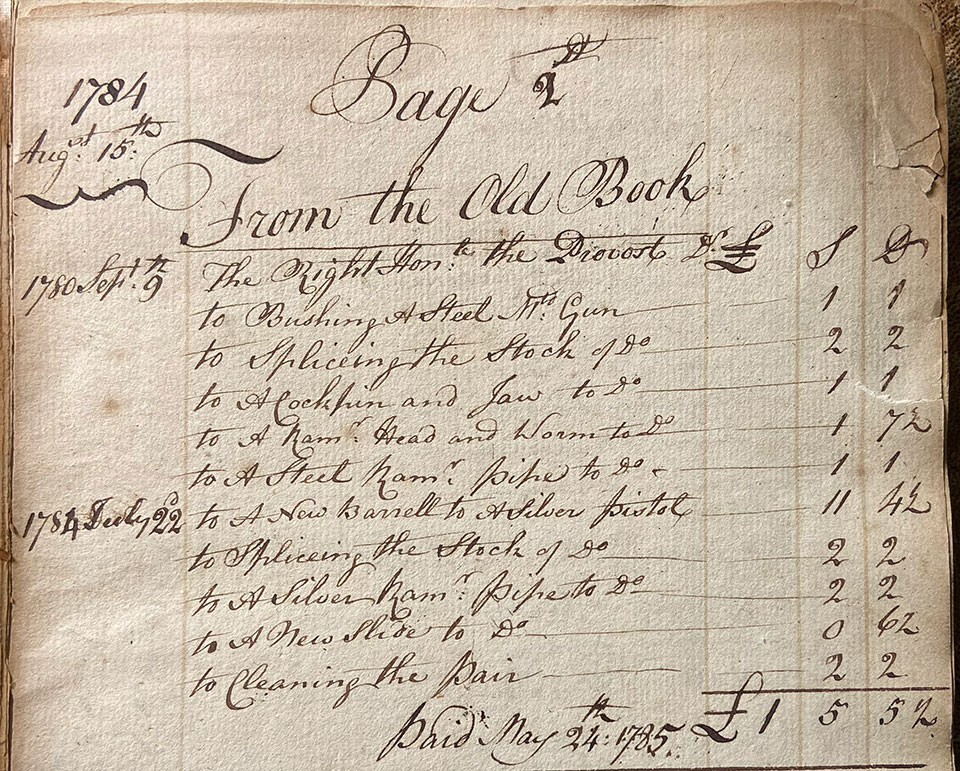 Page 2d
1784
Augst 15th
From the Old Book
1780 Sept. 9th The Right Honble the Provost Dr £ S D
to Bushing A Steel Mtd Gun 1 1
to Spliceing the Stock of Do 2 2
to A Cockpin and Jaw to Do 1 1
to A Ramr Head and Worm to Do 1 7½
to A Steel Ramr pipe to Do 1 1
1784 July 22d to A New Barrell to A Silver pistol 11 4½
to Spliceing the Stock of Do 2 2
to A Silver Ramr pipe to Do 2 2
to A New Slide to Do 0 6½
to Cleaning the pair 2 2
Paid May 24th 1785. £1 5 5½